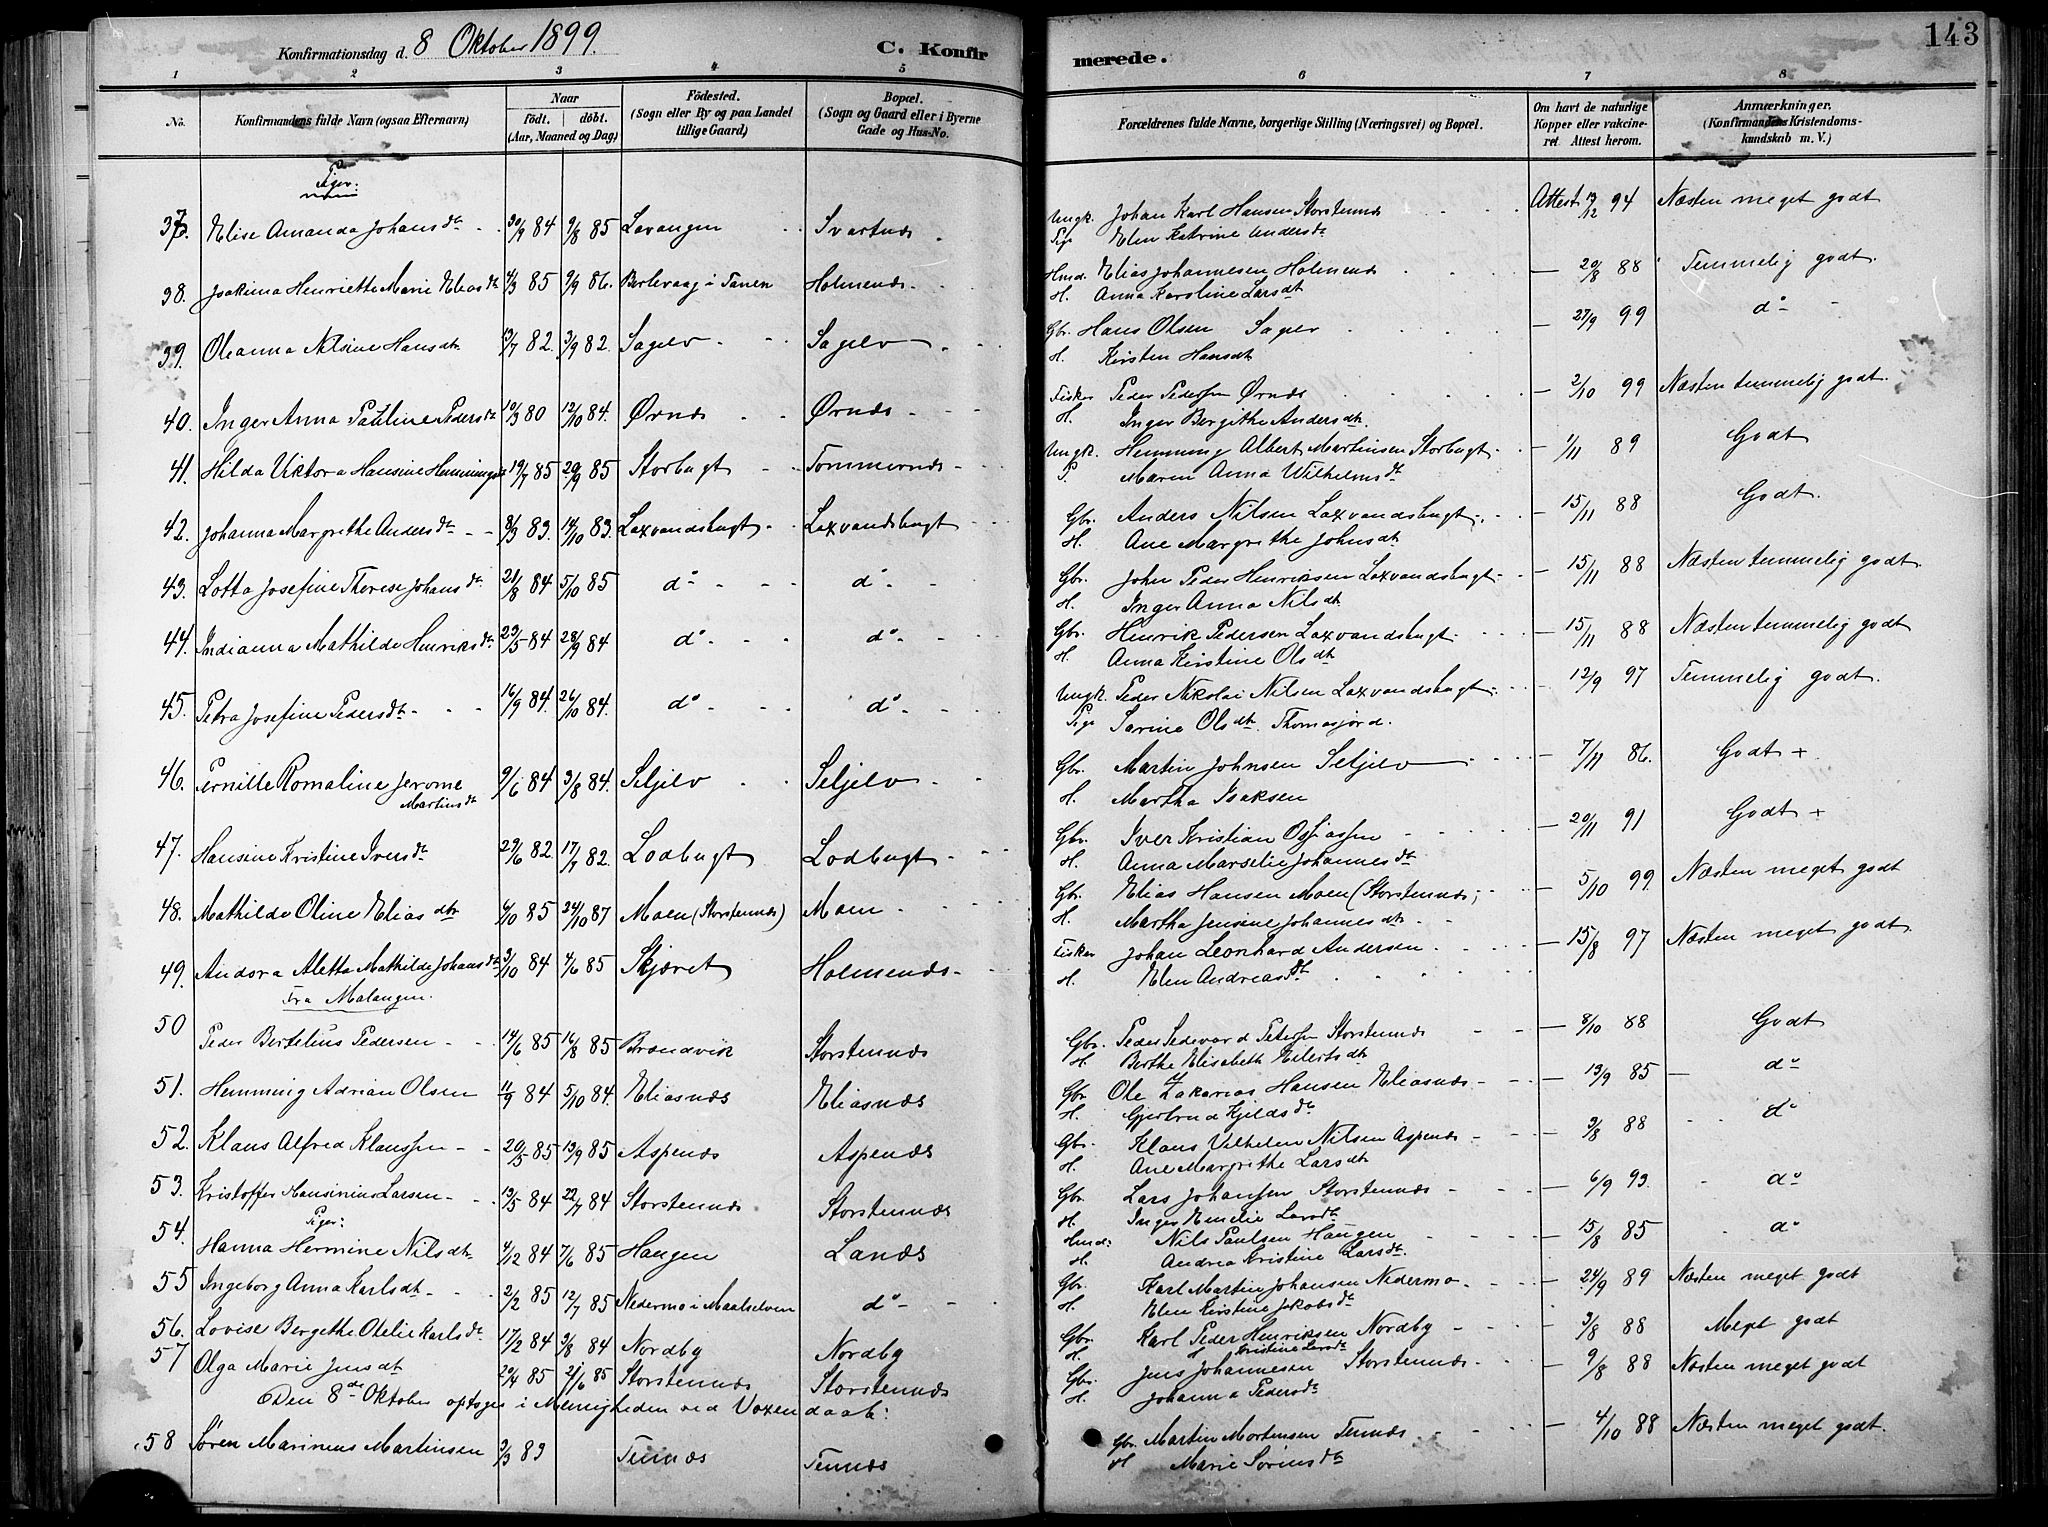 143
Konfirmationsdag d. 8 Oktober 1899.
C. Konfirmerede.
1 2 3 4 5 6 7 8
No. Konfirmandens fulde Navn (ogsaa Efternavn) Naar Født. døbt. (Aar, Maaned og Dag) Fødested. (Sogn eller By og paa Landet tillige Gaard) Bopæl. (Sogn og Gaard eller i Byerne Gade og Hus-No. Forældrenes fulde Navne, borgerlige Stilling (Næringsvei) og Bopæl. Om havt de naturlige Kopper eller vakcineret. Attest herom. Anmærkninger. (Konfirmandens Kristendomskundskab m. V.)
Piger:
37. Elise Amanda Johansdtr 30/9 84 9/8 85 Lavangen Svartnæs Ungk. Johan Karl Hansen Storstennæs Attest 12 94 Næsten meget godt
Pige Elen Katrine Andersdtr
38. Joakima Henriette Marie Eliasdtr 4/3 85 9/9 86. Berlevaag i Tanen Holmenæs Hmd. Elias Johannesen Holmenæs — 20/8 88 Temmelig godt.
H. Anna Karoline Larsdtr
39. Oleanna Nilsine Hansdtr 13/7 82. 3/9 82. Sagelv Sagelv Gbr. Hans Olsen Sagelv — 27/9 99 do
H. Kirsten Hansdtr
40. Inger Anna Pauline Pedersdtr 10/3 80 12/10 84. Ørnæs Ørnæs Fisker Peder Pedersen Ørnæs — 2/10 99 Næsten temmelig godt.
H. Inger Bergithe Andersdtr.
41. Hilda Viktora Hansine Hemmingsdtr 19/7 85 20/9 85 Storbugt Tommernæs Ungk. Hemming Albert Martinsen Storbugt — 1/11 89 Godt
P. Maren Anna Wilhelmsdtr
42. Johanna Margrethe Andersdtr 8/3 83. 14/10 83. Laxvandsbugt Laxvandsbugt Gbr. Anders Nilsen Laxvandsbugt — 15/11 88 Godt.
H. Ane Margrethe Johnsdtr
43. Lotta Josefine Therese Johansdtr 21/8 84 5/10 85 do do Gbr. Johan Peder Henriksen Laxvandsbugt — 15/11 88 Næsten temmelig godt.
H. Inger Anna Nilsdtr.
44. Indianna Mathilde Henriksdtr 23/5 84 28/9 84 do do Gbr. Henrik Pedersen Laxvandsbugt — 15/11 88 Næsten temmelig godt
H. Anna Kirstine Olsdtr
45. Petra Josefine Pedersdtr 16/9 84. 26/10 84. do do Ungk. Peder Nikolai Nilsen Laxvandsbugt — 12/9 97 Temmelig godt.
Pige Sarine Olsdtr. Thomasjord.
46. Pernille Romaline Jerome Martinsdtr 9/6 84 3/8 84. Seljelv Seljelv Gbr. Martin Johnsen Seljelv — 7/11 86. Godt +
H. Martha Isaksen
47. Hansine Kristine Iversdtr 29/6 82. 17/7 82. Lodbugt Lodbugt Gbr. Iver Kristian Ossiassen — 20/11 91 Godt +
H. Anna Marselie Johannesdtr
48. Mathilde Oline Eliasdtr 4/10 85 24/10 87 Moen (Storstennæs) Moen Gbr. Elias Hansen Moen (Storstennæs) — 5/10 99. Næsten meget godt
H. Martha Jensine Johannesdtr
49. Andora Aletta Mathilde Johansdtr 3/10 84 4/6 85 Skjæret Holmenæs Fisker Johan Leonhard Andersen — 15/8 97 Næsten meget godt
H. Elen Andreasdtr
Fra Malangen.
50 Peder Bertelius Pedersen 14/6 85 16/8 85 Brændvik Storstennæs Gbr. Peder Sedevard Petersen Storstennæs — 8/10 88 Godt
H. Berthe Elisabeth Eilertsdtr
51. Hemming Adrian Olsen 11/9 84 5/10 84. Eliasnæs Eliasnæs Gbr. Ole Zakarias Hansen Eliasnæs — 13/9 85 do
H. Gjertrud Kjeldsdtr
52. Klaus Alfred Klaussen 20/5 85 13/9 85 Aspenæs Aspenæs Gbr. Klaus Vilhelm Nilsen Aspenæs — 3/8 88 do
H. Ane Margrethe Larsdtr
53. Kristoffer Mansinius Larsen 13/5 84 22/7 84 Storstennæs Storstennæs Gbr. Lars Johansen Storstennæs — 6/9 93. do
H. Inger Emelie Larsdtr
Piger:
54. Hanna Hermine Nilsdtr 4/12 84 7/6 85 Haugen Lanæs Hmd. Nils Paulsen Haugen — 15/8 85 do
H. Andrea Kristine Larsdtr.
55 Ingeborg Anna Karlsdtr 2/2 85 12/7 85 Nedermo i Maalselven do Gbr. Karl Martin Johansen Nedermo — 24/9 89 Næsten meget godt
H. Elen Kirstine Jakobsdtr
56. Lovise Bergethe Otelie Karlsdtr 17/2 84 3/8 84 Nordby Nordby Gbr. Karl Peder Henriksen Nordby — 3/8 88 Meget godt
H. Kristine Larsdtr
57 Olga Marie Jensdtr 20/4 85 21/6 85 Storstennæs Storstennæs Gbr. Jens Johannesen Storstennæs — 9/8 88 Næsten meget godt
H. Johanna Pedersdtr
Den 8de Oktober optoges i Menigheden ved Voxendaab:
58 Søren Marineus Martinsen 3/3 83 Tennæs Tennæs Gbr. Martin Mortensen Tennæs — 4/10 88 Næsten meget godt.
H Marie Sørensdtr